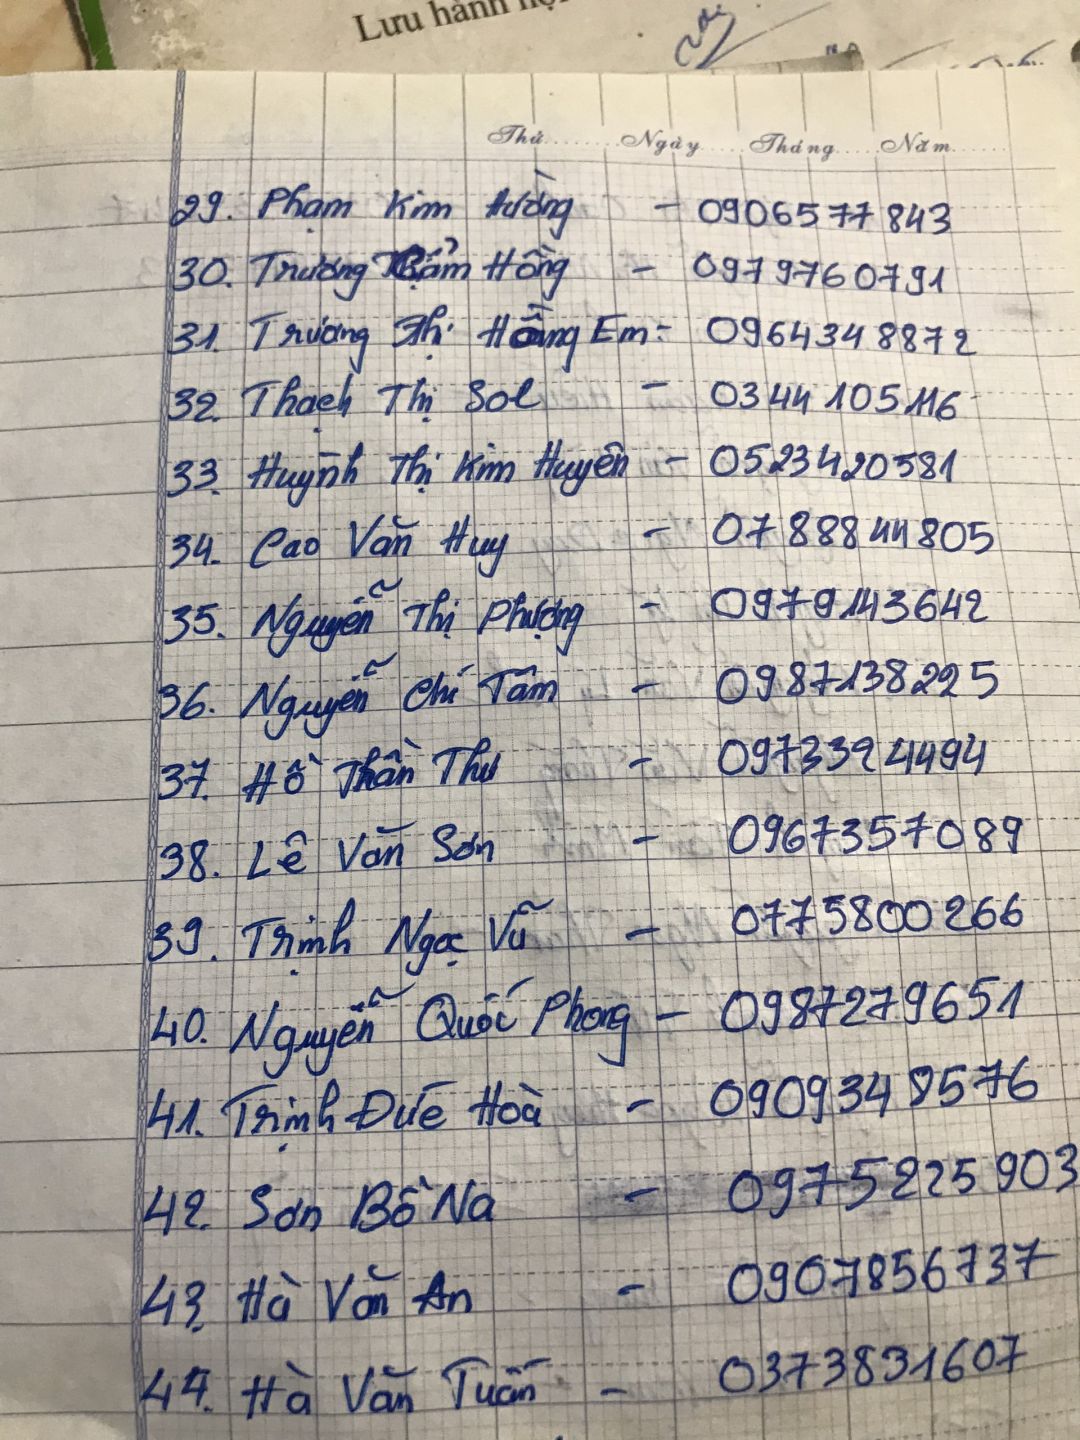 Lưu hành nội
Thứ........ Ngày..... Tháng..... Năm.......
29. Phạm Kim Hường - 0906577843
30. Trương Cẩm Hồng - 0979760791
31. Trương Thị Hồng Em - 0964348872
32. Thạch Thị Sol - 0344105116
33. Huỳnh Thị Kim Huyên - 0523420581
34. Cao Văn Huy - 0788844805
35. Nguyễn Thị Phượng - 0979143642
36. Nguyễn Chí Tâm - 0987138225
37. Hồ Thần Thư - 0973394494
38. Lê Văn Sơn - 0967357089
39. Trịnh Ngọc Vũ - 0775800266
40. Nguyễn Quốc Phong - 0987279651
41. Trịnh Đức Hoà - 0909348576
42. Sơn Bồ Na - 0975225903
43. Hà Văn An - 0907856737
44. Hà Văn Tuấn - 0373831607